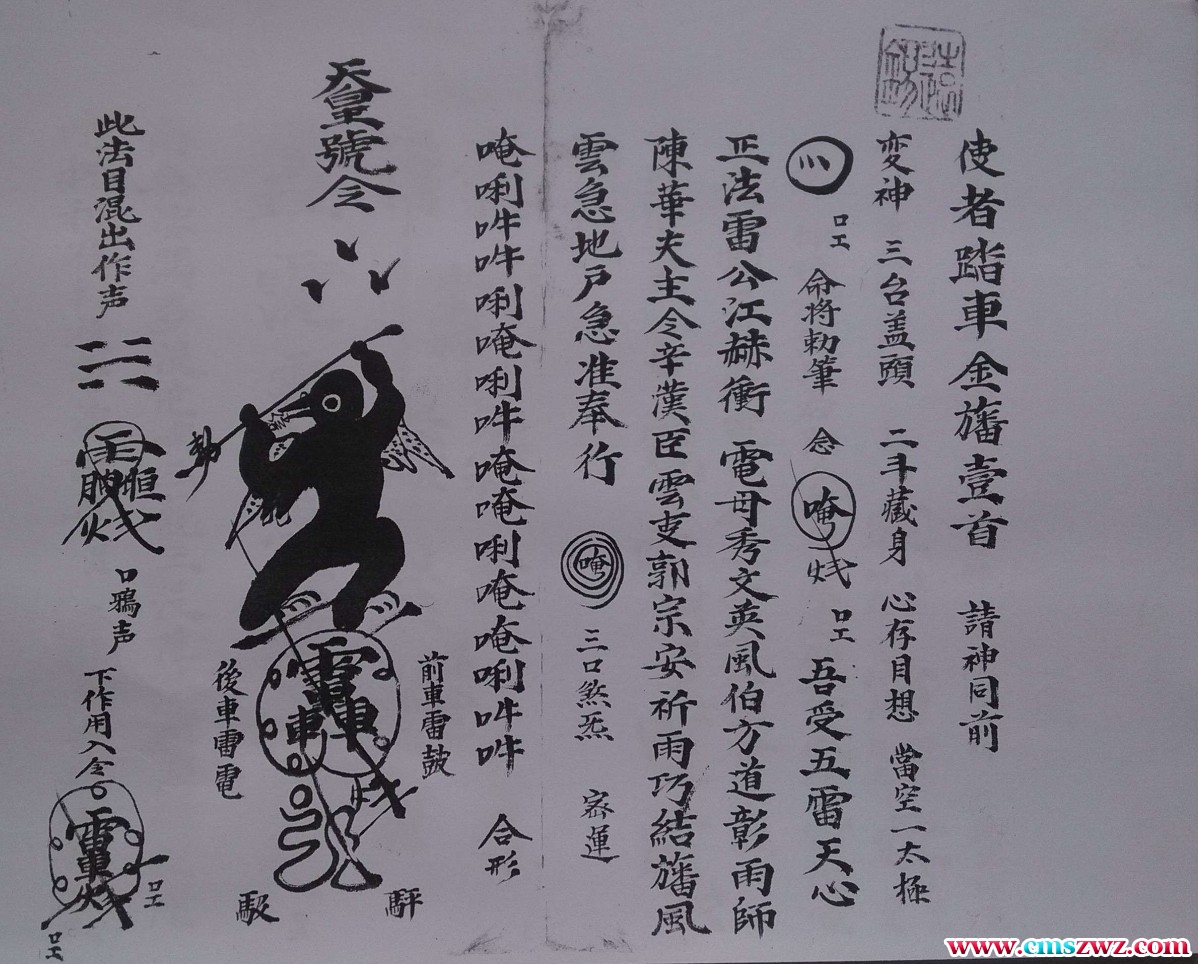 使者踏車金旛壹首 請神同前
変神 三台盖頭 二斗藏身 心存目想 當空一太極
口工 命将勅筆 念 唵 口工 吾受五雷天心
正法雷公江赫衝 電母秀文英風伯方道彰雨師
陳華夫主令辛漢臣雲吏郭宗安祈雨巧結旛風
雲急地户急准奉行 唵 三口煞炁 宻運
唵唎吽吽唎唵唎吽唵唵唎唵唵唎吽吽 合形
天皇號令
勅
前車雷鼓
後車雷電
此法目混出作声
口鴉声
下作用入念
口工
口工
www.cmszwz.com